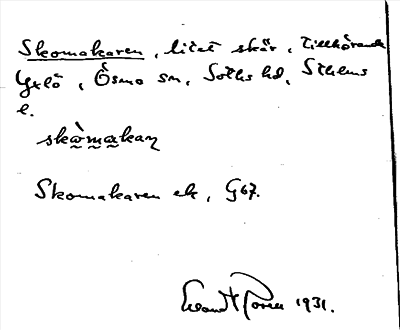 Skomakaren, litet skär, tillhörande
Yxlö, Ösmo sn, Sotholms hd, Sthlms
l.
skòmakaɳ
Skomakaren ek, G67.
1931.